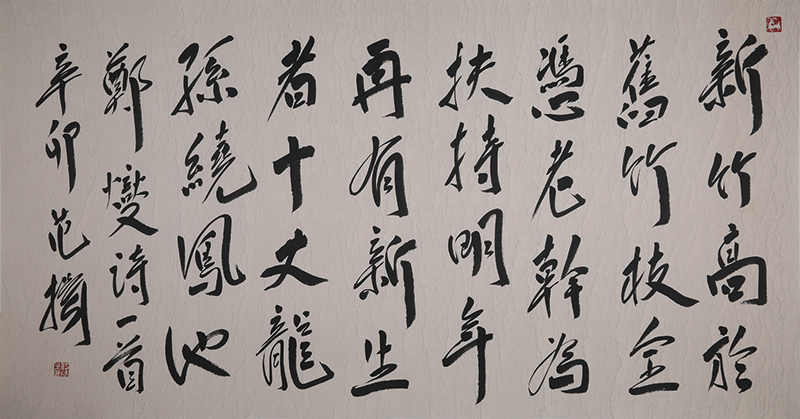 新竹高於
舊竹枝全
憑老幹為
扶持明年
再有新生
者十丈龍
孫繞鳳池
鄭燮詩一首
辛卯范